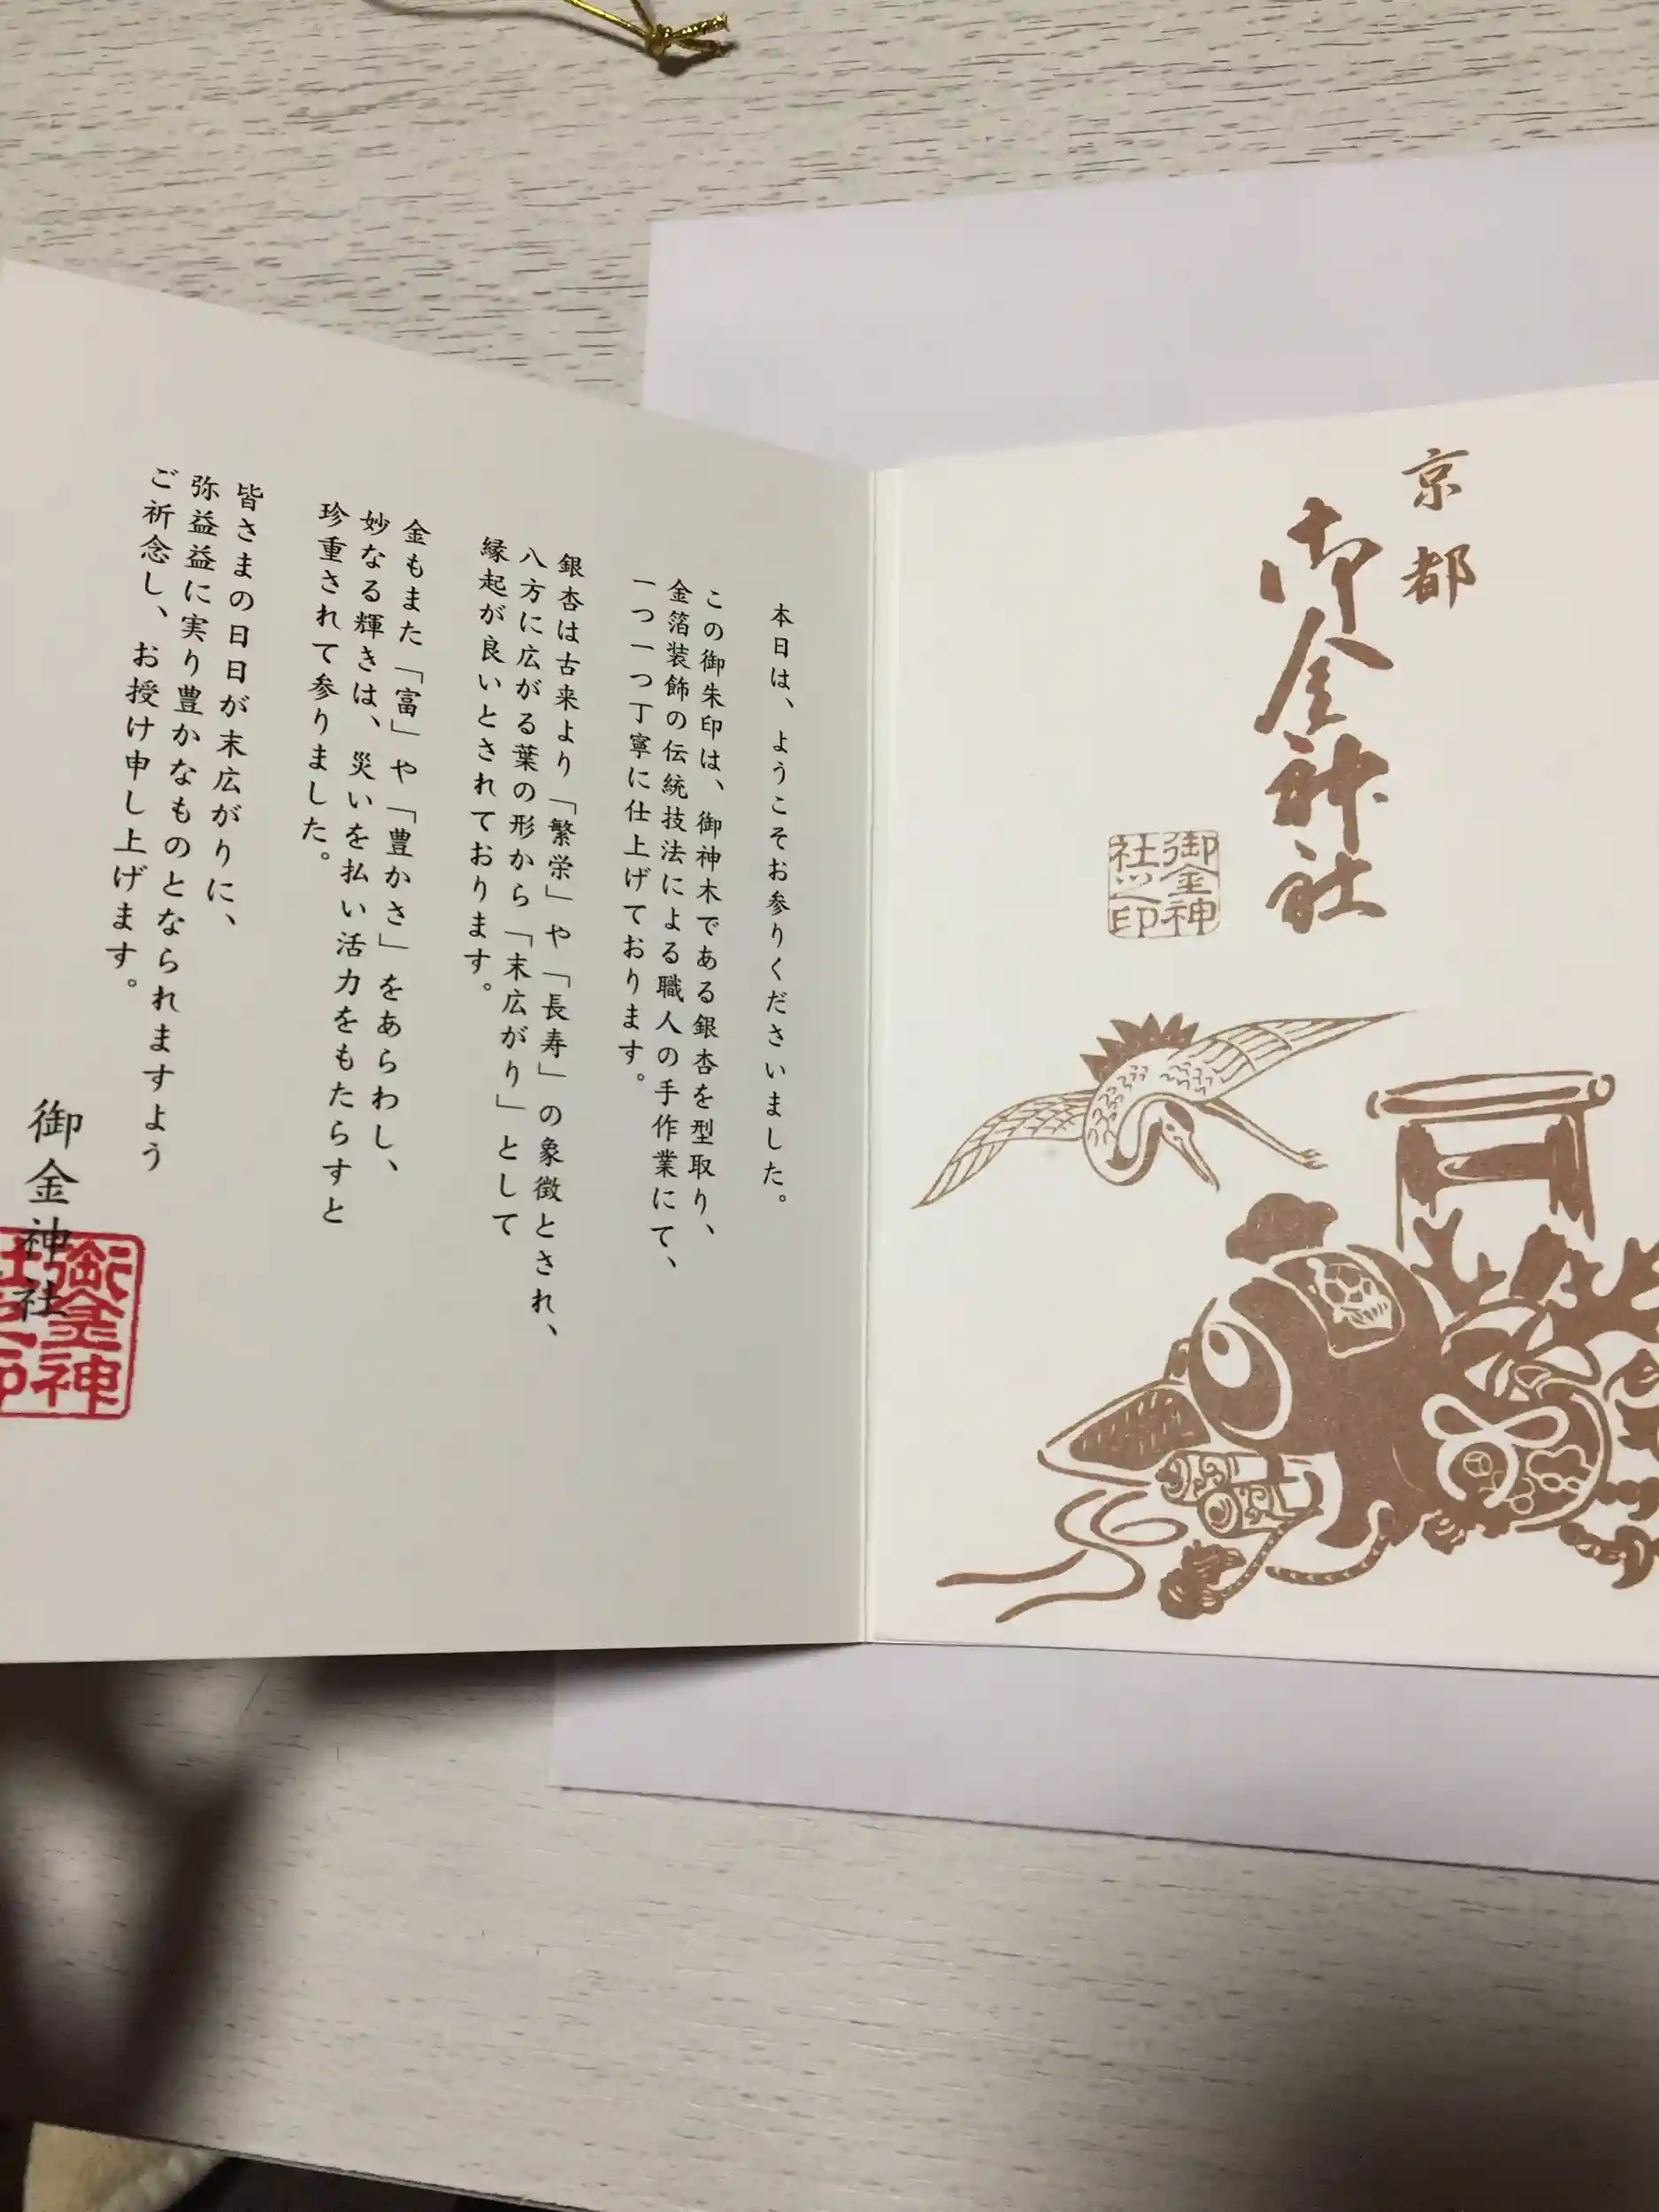 京都
御金神社
御金神
社之印
本日は、ようこそお参りくださいました。
この御朱印は、御神木である銀杏を型取り、
金箔装飾の伝統技法による職人の手作業にて、
一つ一つ丁寧に仕上げております。
銀杏は古来より「繁栄」や「長寿」の象徴とされ、
八方に広がる葉の形から「末広がり」として
縁起が良いとされております。
金もまた「富」や「豊かさ」をあらわし、
妙なる輝きは、災いを払い活力をもたらすと
珍重されて参りました。
皆さまの日日が末広がりに、
弥益益に実り豊かなものとなられますよう
ご祈念し、お授け申し上げます。
御金神社
御金神